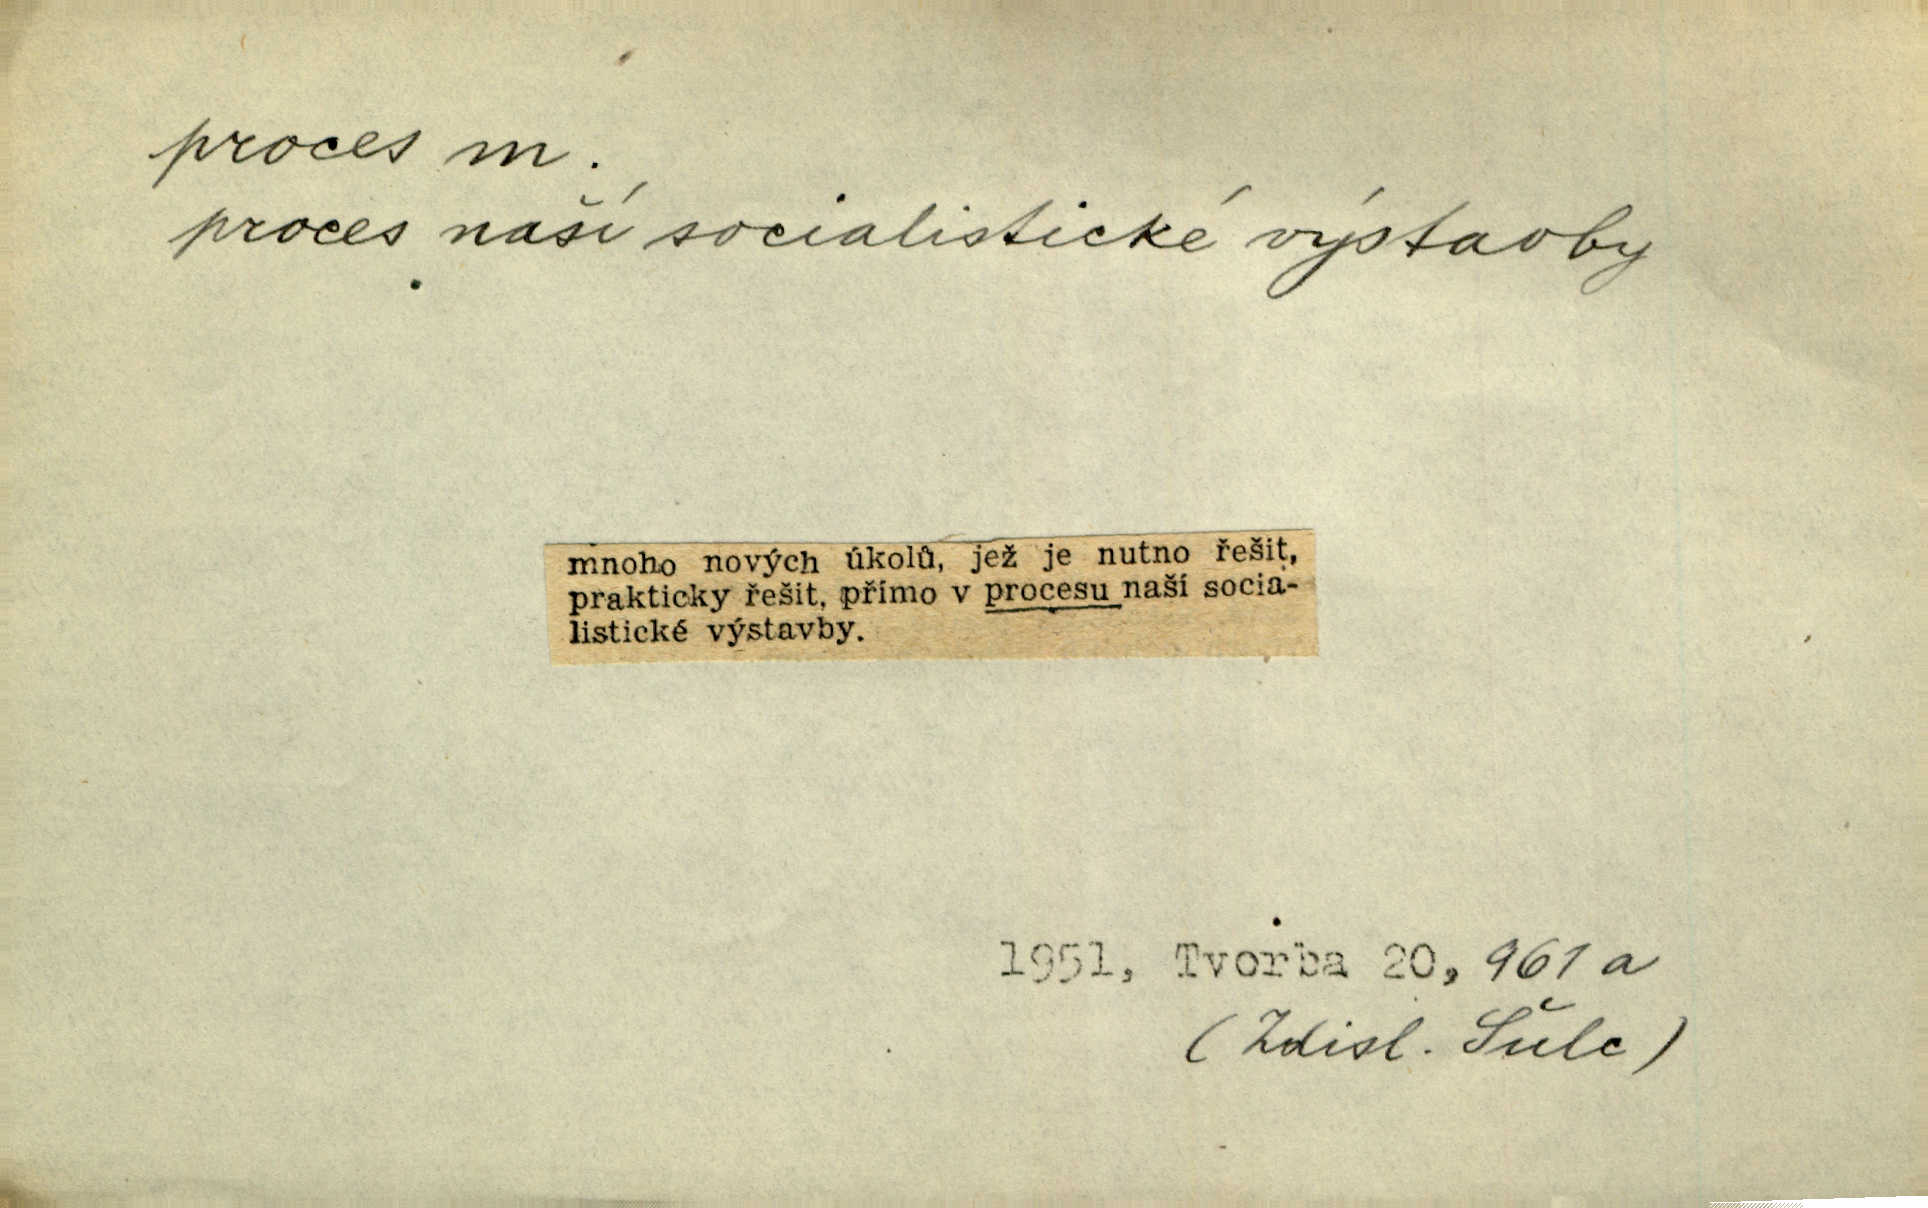 proces m.
proces naší socialistické výstavby
mnoho nových úkolů, jež je nutno řešit,
prakticky řešit, přímo v procesu naší socia-
listické výstavby.
1951, Tvorba 20, 961 a
(Zdisl. Šulc)